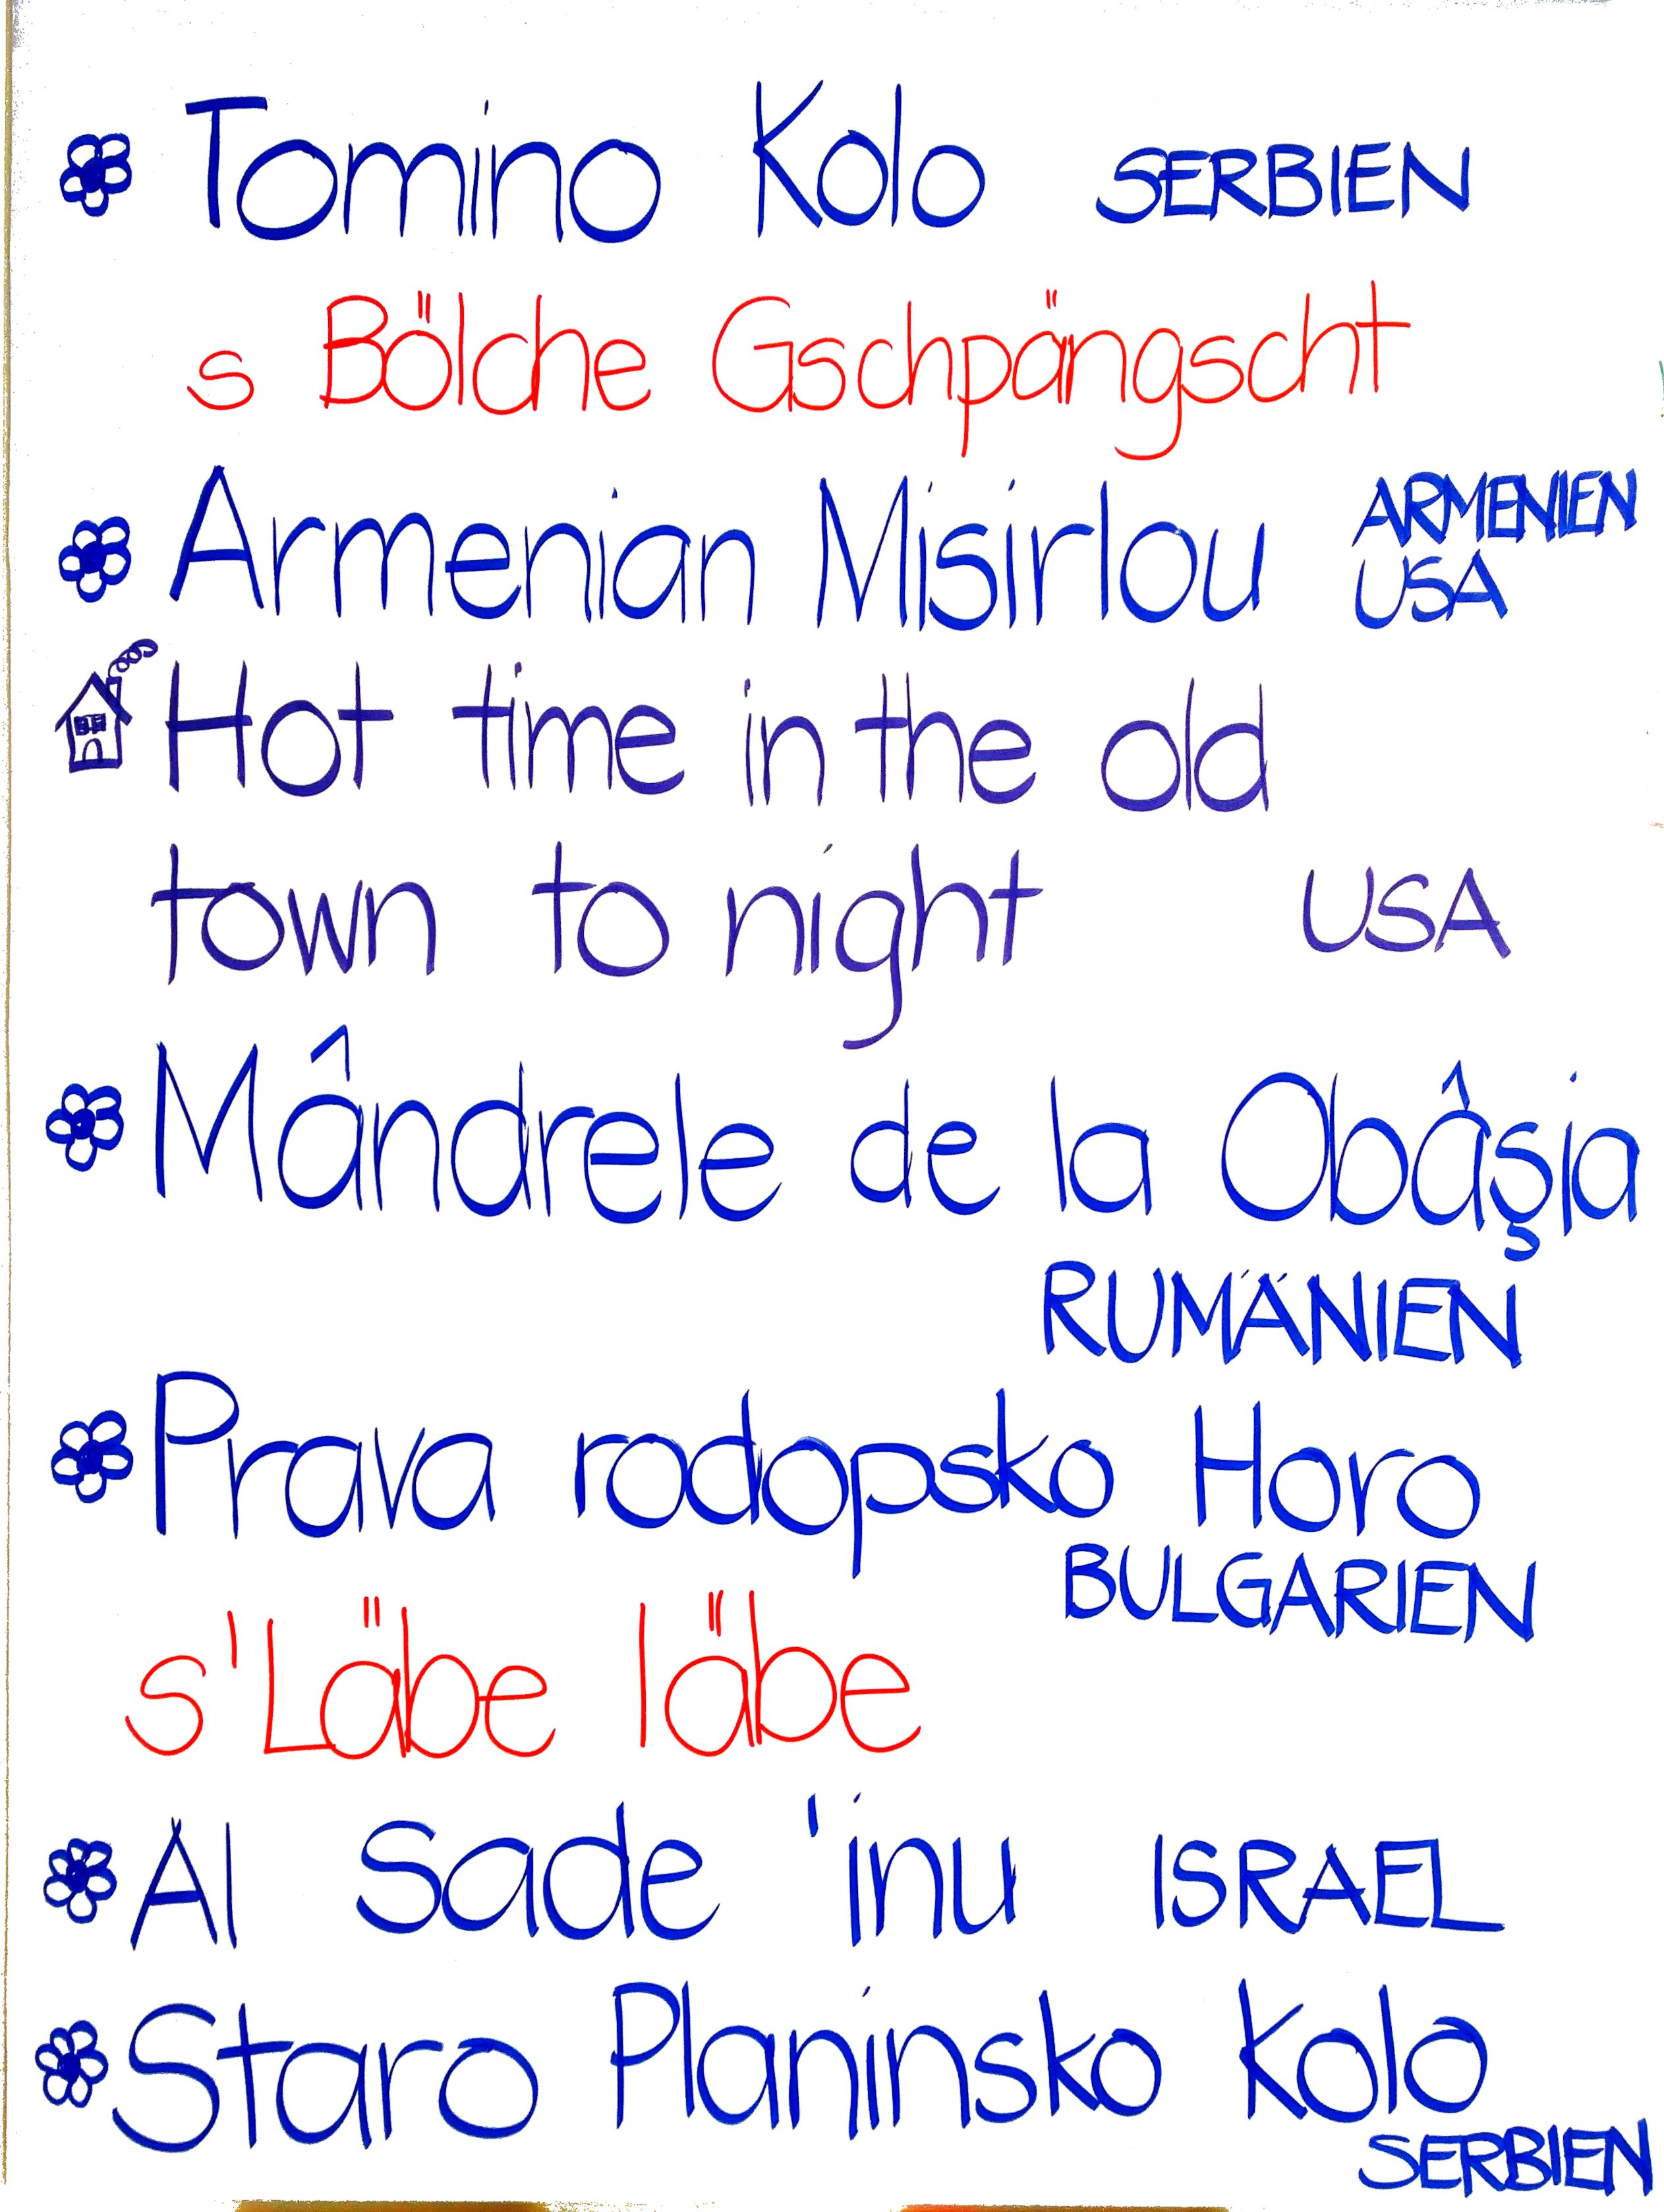 Tomino Kolo SERBIEN
s Bölche Gschpängscht
Armenian Misirlou ARMENIEN
USA
Hot time in the old
town to night USA
Mândrele de la Obâşia
RUMÄNIEN
Prava rodopsko Horo
BULGARIEN
s'Läbe läbe
Al sade 'inu ISRAEL
Staro Planinsko Kolo
SERBIEN